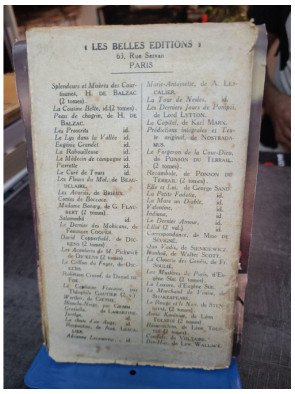 « LES BELLES EDITIONS »
63, Rue Servan
PARIS
Splendeurs et Misères des Cour-
tisanes, H. DE BALZAC
(2 tomes)
La Cousine Bette, id.(2 tomes).
Peau de chagrin, de H. DE
BALZAC.
Les Proscrits id.
Le Lys dans la Vallée id.
Eugénie Grandet id.
La Rabouilleuse id.
Le Médecin de campagne id.
Pierrette id.
Le Curé de Tours id.
Les Fleurs du Mal, de BEAU-
DELAIRE.
Les Avariés, de BRIEUX.
Contes de Boccace.
Madame Bovary, de G. FLAU-
BERT (2 tomes).
Salammbô id.
Le Dernier des Mohicans, de
Fenimore COOPER.
David Copperfield, de DIC-
KENS (2 tomes).
Les Aventures de M. Pickwick
de DICKENS (2 tomes).
Le Grillon du Foyer, de DIC-
KENS
Robinson Crusoé, de Daniel DE
FOE
Le Capitaine Fracasse, par
Théophile GAUTIER (2 v.)
Werther, de GŒTHE.
Graziella, de LAMARTINE
Jocelyn, id.
La chute d'un Ange, id.
Marie-Antoinette, de A. LES-
CALIER.
La Tour de Nesles, id.
Les Derniers Jours de Pompéi,
de Lord LYTTON.
Le Capital, de Karl MARX.
Prédictions intégrales et Tex-
te original, de NOSTRADA-
MUS.
Le Forgeron de la Cour-Dieu,
de PONSON DU TERRAIL,
(2 tomes).
Rocambole, de PONSON DU
TERRAIL (2 tomes).
Elle et Lui, de George SAND.
La Petite Fadette, id.
La Mare au Diable, id.
Valentine, id.
Indiana, id.
Le Dernier Amour, id.
Lélia (2 vol.) id.
Correspondance, de Mme DE
SÉVIGNÉ.
Quo Vadis, de SIENKIEWICZ
Ivanhoé, de Walter SCOTT.
Les Mystères de Paris, d'Eu-
gène SUE
Le Marchand de Venise, de
SHAKESPEARE.
Le Rouge et le Noir, de STEN-
DHAL (2 tomes)
Anna Karénine, de Léon
TOLSTOÏ (2 tomes)
Résurrection, de Léon TOLS-
TOÏ (2 tomes).
Candide, de VOLTAIRE.
Ben-Hur, de Lew. WALLACE.